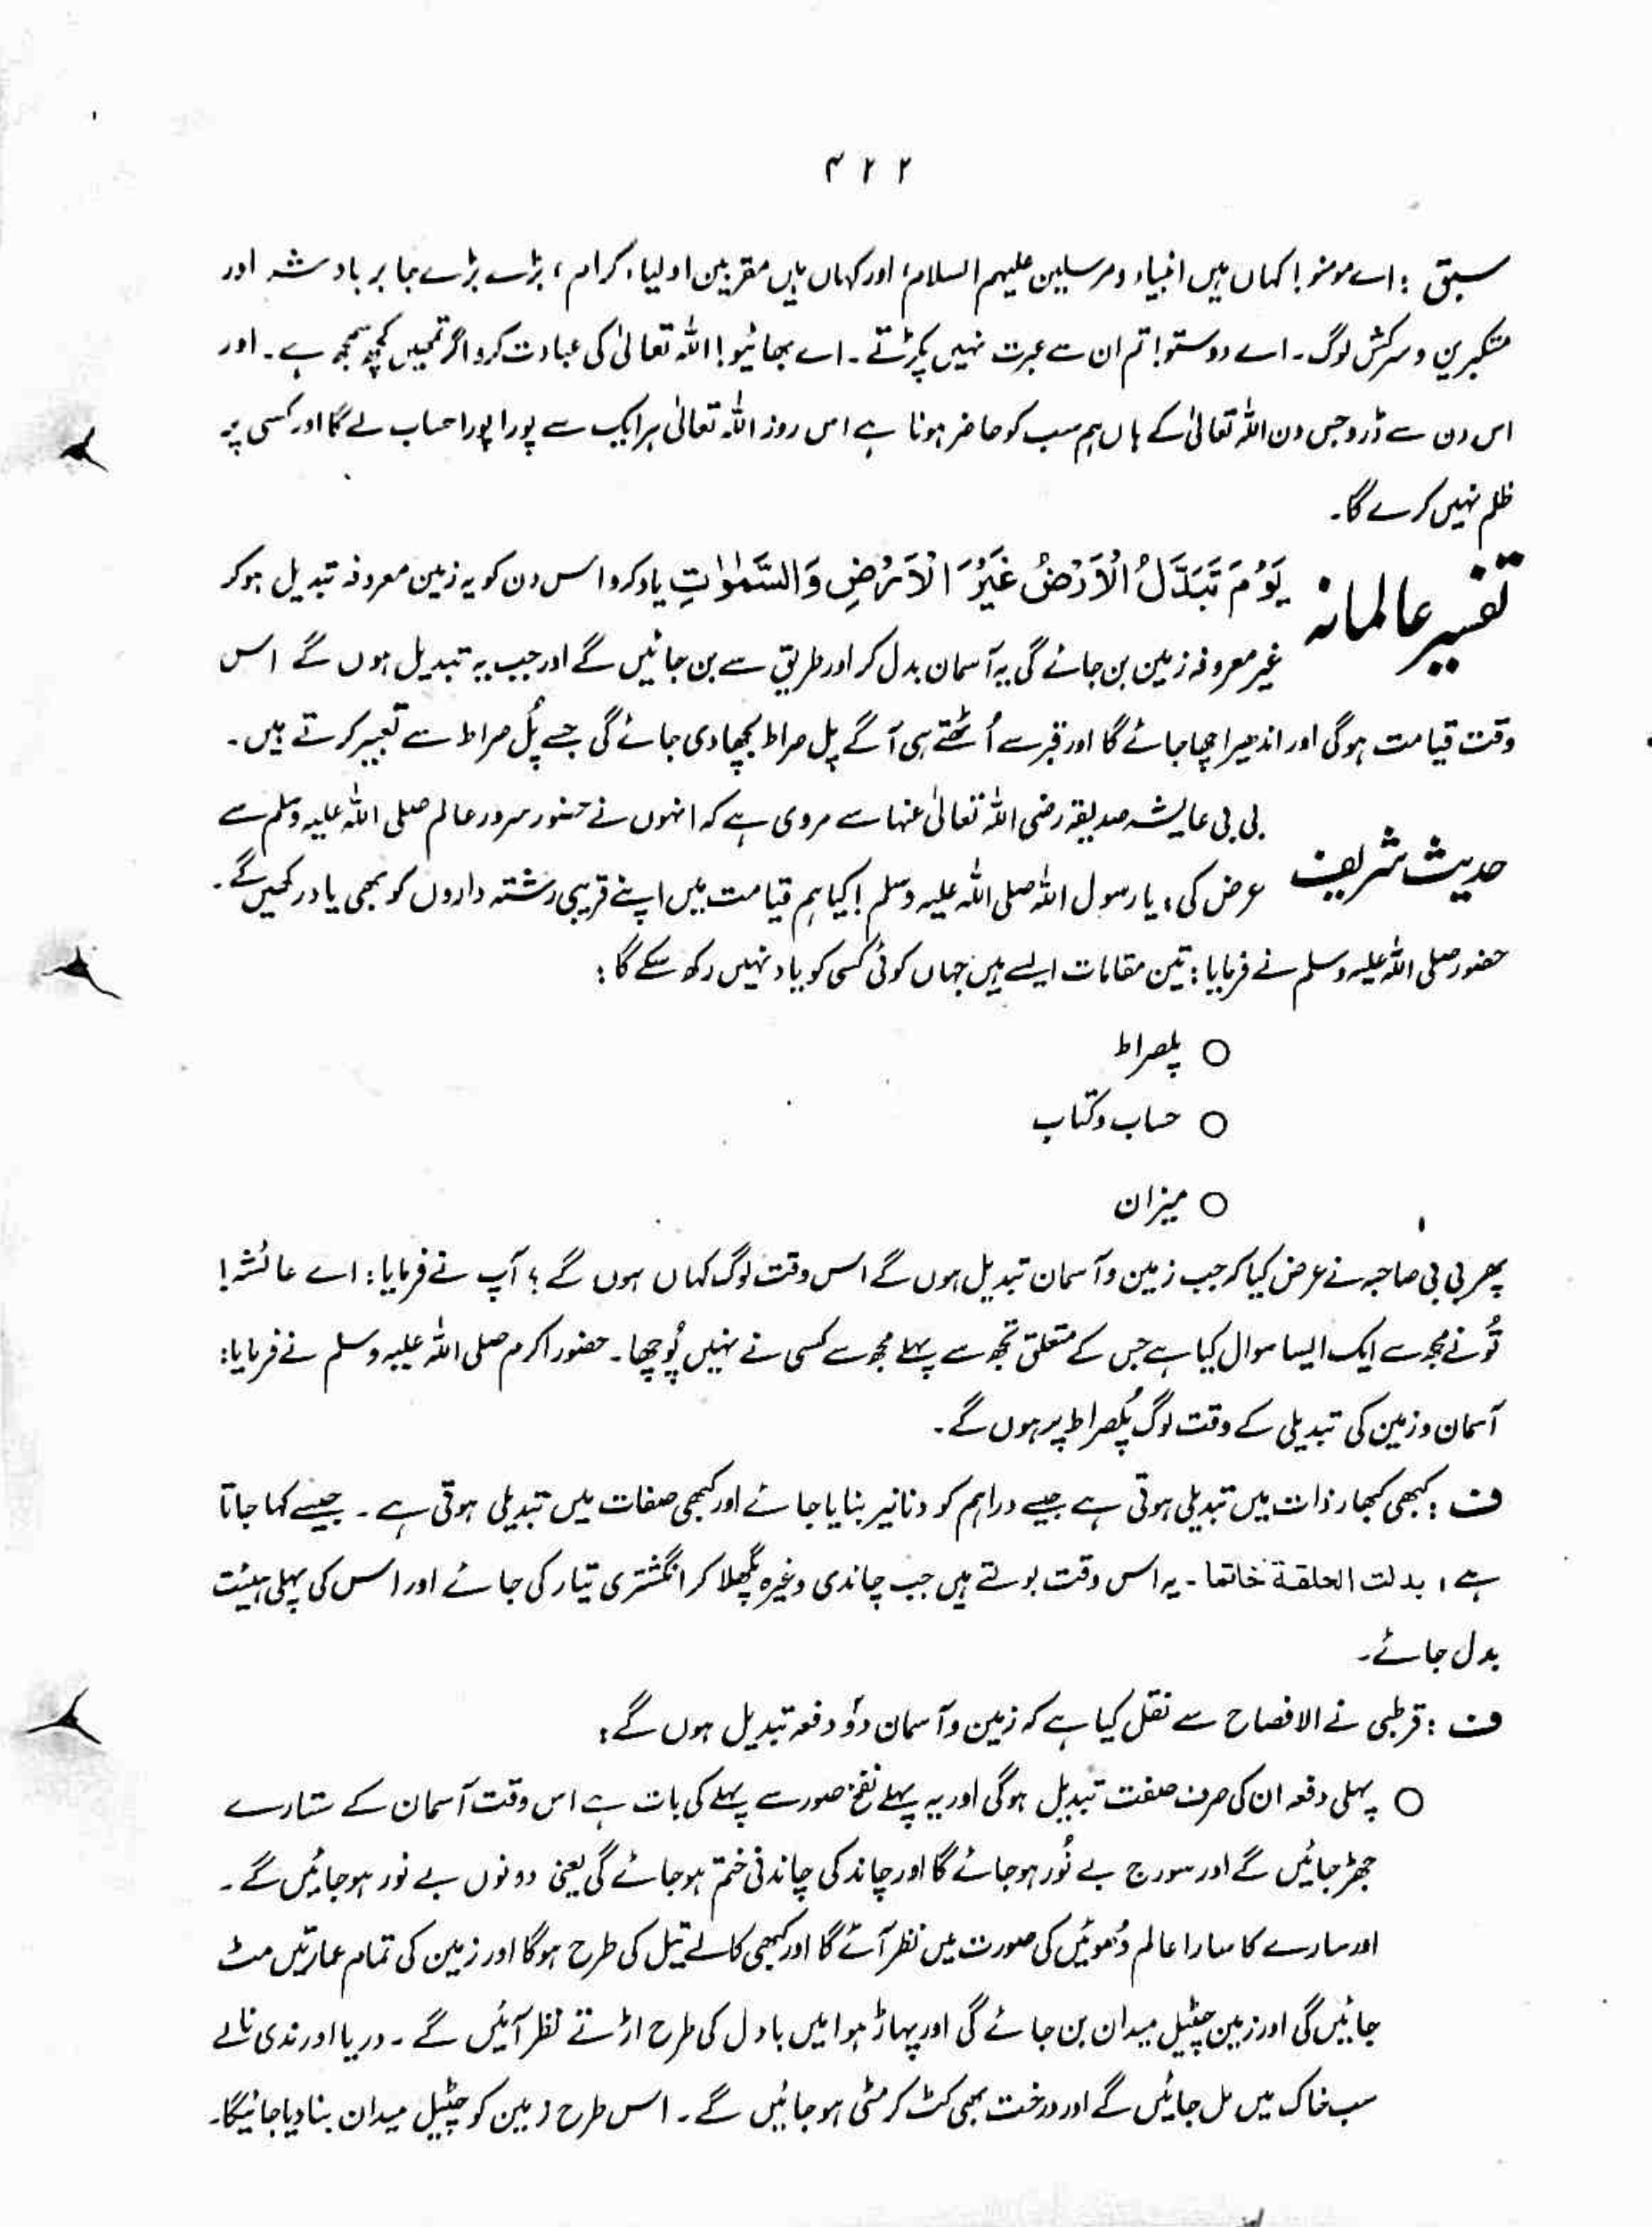 ۴۲۲
سبق : اے مومنو! کہاں ہیں انبیاء و مرسلین علیہم السلام، اور کہاں ہیں مقربین اولیاء کرام، بڑے بڑے جابر بادشہ اور
متکبرین و سرکش لوگ۔ اے دوستو! تم ان سے عبرت نہیں پکڑتے۔ اے بھائیو! اللہ تعالیٰ کی عبادت کرو اگر تمہیں کچھ سمجھ ہے۔ اور
اس دن سے ڈرو جس دن اللہ تعالیٰ کے ہاں ہم سب کو حاضر ہونا ہے اس روز اللہ تعالیٰ ہر ایک سے پورا پورا حساب لے گا اور کسی پہ
ظلم نہیں کرے گا۔
تفسیر عالمانہ یَوْمَ تُبَدَّلُ الْاَرْضُ غَیْرَ الْاَرْضِ وَالسَّمٰوٰتِ یاد کرو اس دن کو یہ زمین معروفہ تبدیل ہو کر
غیر معروفہ زمین بن جائے گی یہ آسمان بدل کر اور طریق سے بن جائیں گے اور جب یہ تبدیل ہوں گے اس
وقت قیامت ہوگی اور اندھیرا چھا جائے گا اور قبر سے اُٹھتے ہی آگے پل صراط بچھا دی جائے گی جسے پُل صراط سے تعبیر کرتے ہیں۔
حدیث شریف بی بی عایشہ صدیقہ رضی اللہ تعالیٰ عنہا سے مروی ہے کہ انہوں نے حضور سرور عالم صلی اللہ علیہ وسلم سے
عرض کی، یا رسول اللہ صلی اللہ علیہ وسلم! کیا ہم قیامت میں اپنے قریبی رشتہ داروں کو بھی یاد رکھیں گے۔
حضور صلی اللہ علیہ وسلم نے فرمایا: تین مقامات ایسے ہیں جہاں کوئی کسی کو یاد نہیں رکھ سکے گا:
○ پلصراط
○ حساب و کتاب
○ میزان
پھر بی بی صاحبہ نے عرض کیا کہ جب زمین و آسمان تبدیل ہوں گے اس وقت لوگ کہاں ہوں گے؟ آپ نے فرمایا: اے عائشہ!
تُو نے مجھ سے ایک ایسا سوال کیا ہے جس کے متعلق تجھ سے پہلے مجھ سے کسی نے نہیں پُوچھا۔ حضور اکرم صلی اللہ علیہ وسلم نے فرمایا:
آسمان و زمین کی تبدیلی کے وقت لوگ پُلصراط پر ہوں گے۔
ف : کبھی کبھار ذات میں تبدیلی ہوتی ہے جیسے دراہم کو دنانیر بنایا جائے اور کبھی صفات میں تبدیلی ہوتی ہے۔ جیسے کہا جاتا
ہے، بدلت الحلقة خاتما۔ یہ اس وقت بولتے ہیں جب چاندی وغیرہ پگھلا کر انگشتری تیار کی جائے اور اس کی پہلی ہیئت
بدل جائے۔
ف : قرطبی نے الافصاح سے نقل کیا ہے کہ زمین و آسمان دوٗ دفعہ تبدیل ہوں گے:
○ پہلی دفعہ ان کی صرف صفت تبدیل ہوگی اور یہ پہلے نفخ صور سے پہلے کی بات ہے اس وقت آسمان کے ستارے
جھڑ جائیں گے اور سورج بے نُور ہو جائے گا اور چاند کی چاندنی ختم ہو جائے گی یعنی دونوں بے نور ہو جائیں گے۔
اور سارے کا سارا عالم دُھوئیں کی صورت میں نظر آئے گا اور کبھی کالے تیل کی طرح ہوگا اور زمین کی تمام عمارتیں مٹ
جائیں گی اور زمین چٹیل میدان بن جائے گی اور پہاڑ ہوا میں بادل کی طرح اڑتے نظر آئیں گے۔ دریا اور ندی نالے
سب خاک میں مل جائیں گے اور درخت بھی کٹ کر مٹی ہو جائیں گے۔ اس طرح زمین کو چٹیل میدان بنا دیا جائیگا۔